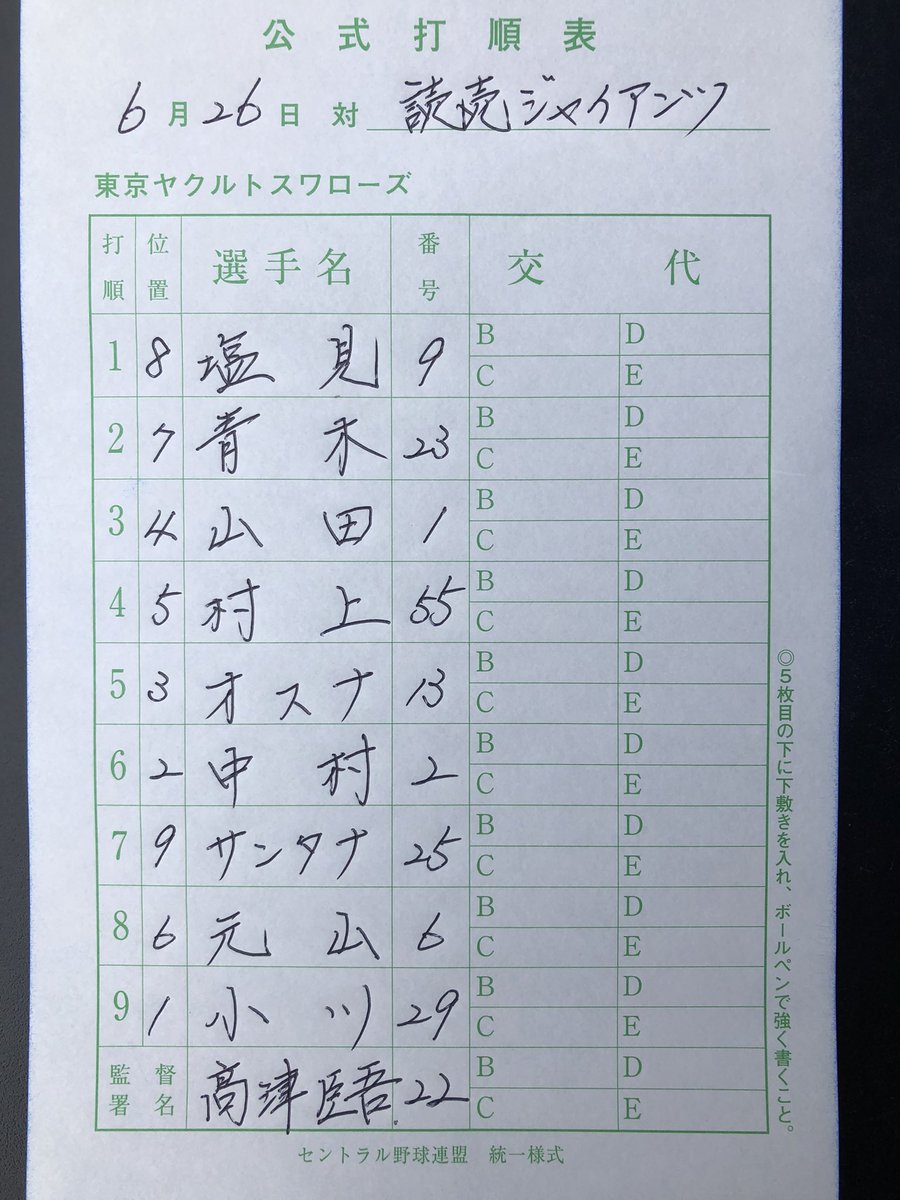 公式打順表
6月26日 対 読売ジャイアンツ
東京ヤクルトスワローズ
打順 位置 選手名 番号 交代
1 8 塩見 9 B D C E
2 7 青木 23 B D C E
3 4 山田 1 B D C E
4 5 村上 55 B D C E
5 3 オスナ 13 B D C E
6 2 中村 2 B D C E
7 9 サンタナ 25 B D C E
8 6 元山 6 B D C E
9 1 小川 29 B D C E
監督署名 高津臣吾 22 B D C E
◎5枚目の下に下敷きを入れ、ボールペンで強く書くこと。
セントラル野球連盟 統一様式